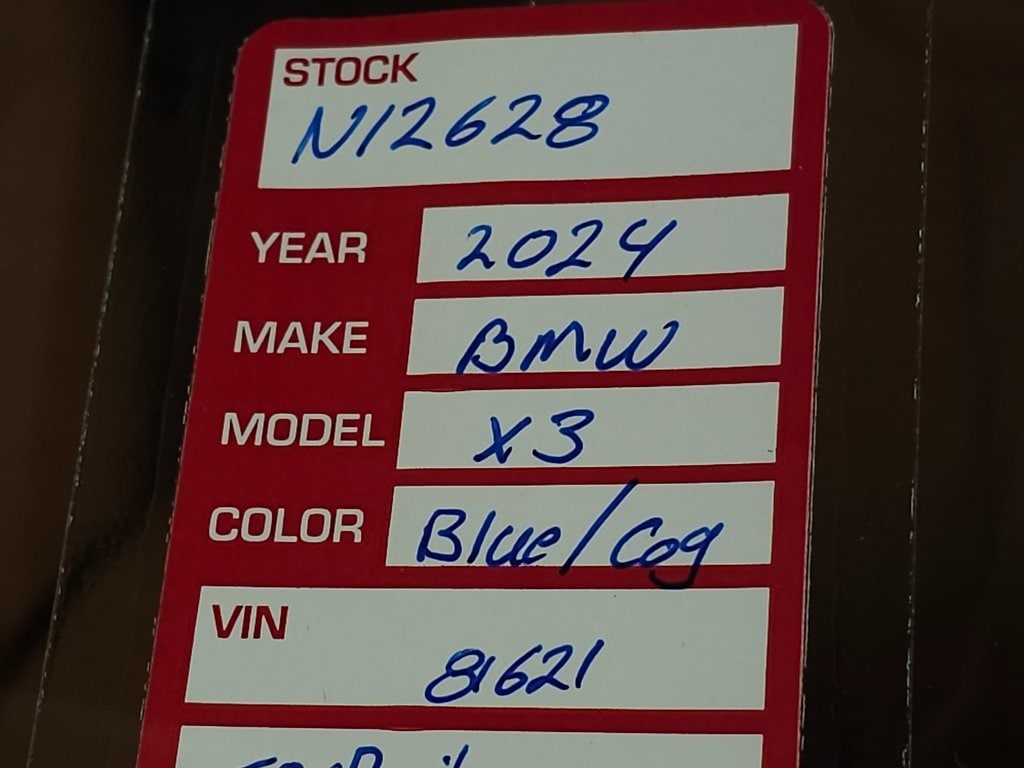 STOCK
N12628
YEAR 2024
MAKE BMW
MODEL X3
COLOR Blue/Cog
VIN
81621